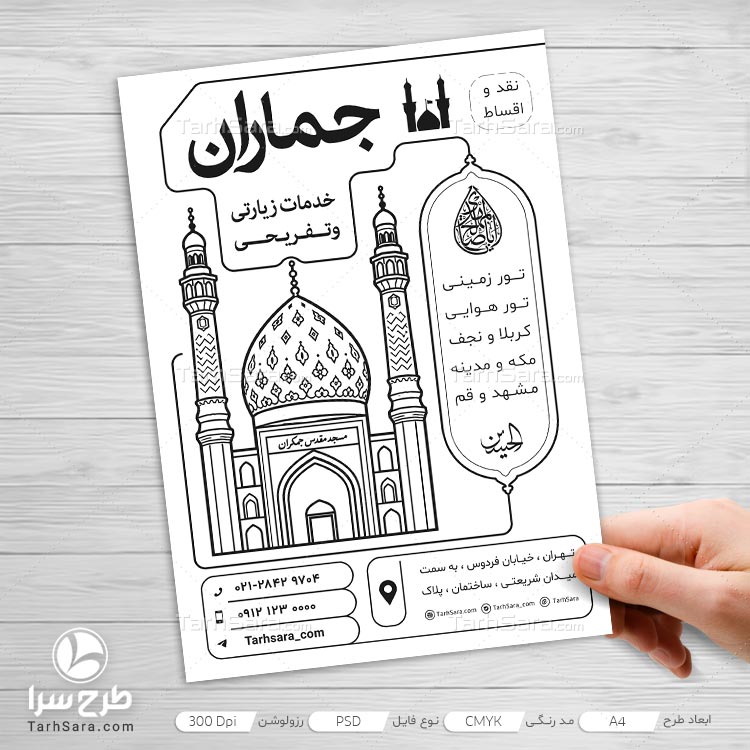 نقد و
اقساط
جماران
خدمات زیارتی
وتفریحی
تور زمینی
تور هوایی
کربلا و نجف
مکه و مدینه
مشهد و قم
الحسین
مسجد مقدس جمکران
۰۲۱-۲۸۴۲ ۹۷۰۴
۰۹۱۲ ۱۲۳ ۰۰۰۰
Tarhsara_com
تهران ، خیابان فردوس ، به سمت
میدان شریعتی ، ساختمان ، پلاک
TarhSara.com TarhSara_com TarhSara
TarhSara.com
TarhSara.com
TarhSara.com
TarhSara.com
TarhSara.com
TarhSara.com
طرح سرا
TarhSara.com
ابعاد طرح A4 مد رنگی CMYK نوع فایل PSD رزولوشن 300 Dpi